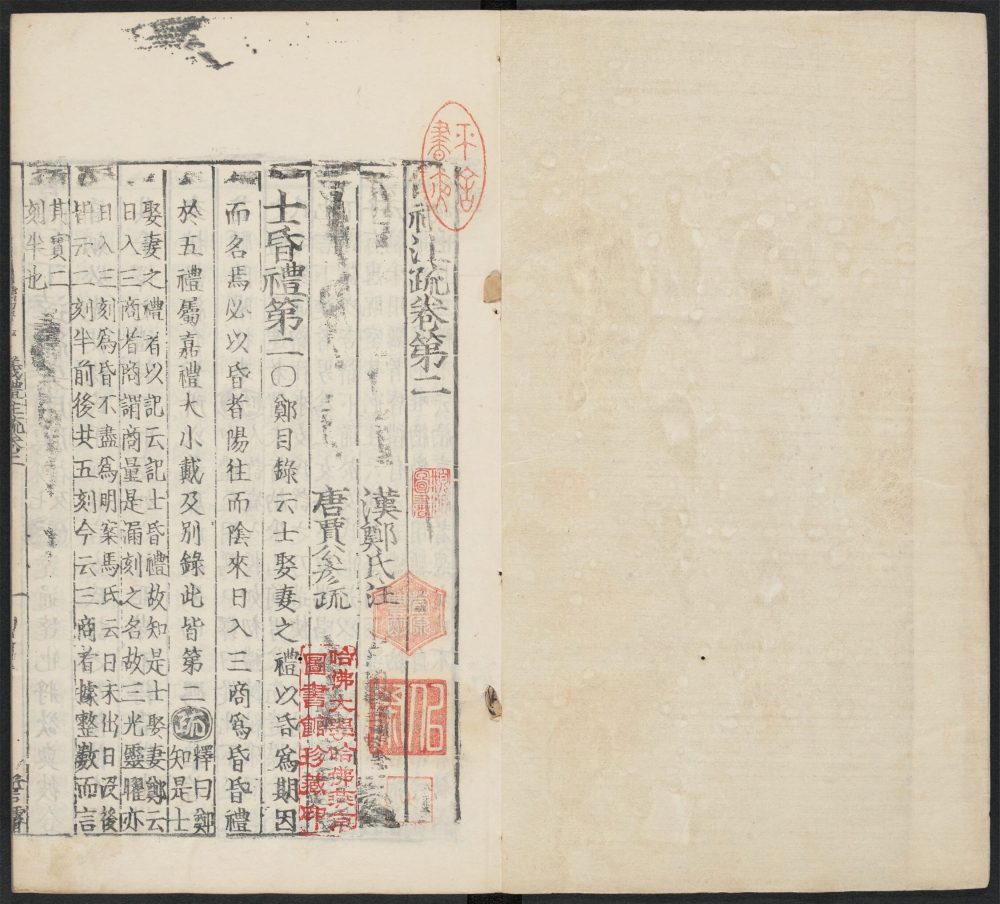 禮注疏卷第二
漢鄭氏注
唐賈公彥疏
士昏禮第二〇鄭目錄云士娶妻之禮以昏爲期因
而名焉必以昏者陽往而陰來日入三商爲昏昏禮
於五禮屬嘉禮大小戴及別錄此皆第二疏釋曰鄭
知是士
娶妻之禮者以記云記士昏禮故知是士娶妻鄭云
日入三商者商謂商量是漏刻之名故三光靈曜亦
日入三刻爲昏不盡爲明案馬氏云日未出日沒後
皆云二刻半前後共五刻今云三商者據整數而言
其實二
刻半也
儀禮註疏卷二
哈佛大學哈佛燕京
圖書館珍藏印